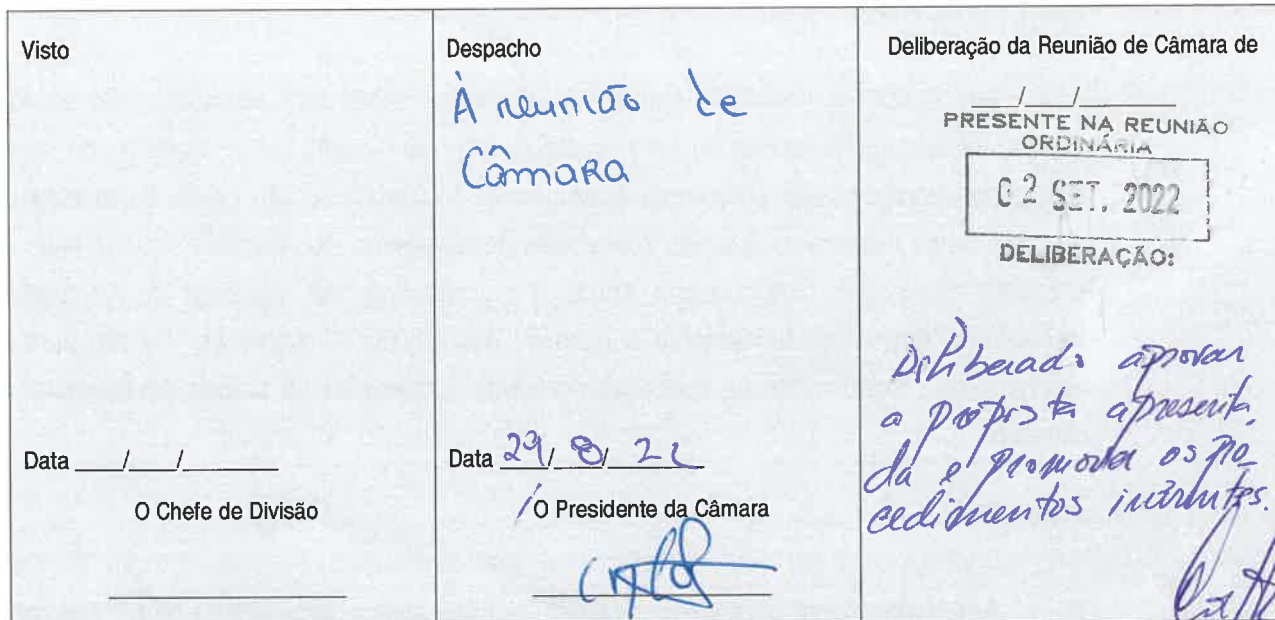 Visto
Data ___/___/______
O Chefe de Divisão
Despacho
À reunião de
Câmara
Data 29/8/22
/O Presidente da Câmara
Deliberação da Reunião de Câmara de
___/___/______
PRESENTE NA REUNIÃO
ORDINÁRIA
02 SET. 2022
DELIBERAÇÃO:
Deliberado aprovar
a proposta apresenta
da e promover os pro-
cedimentos inerentes.